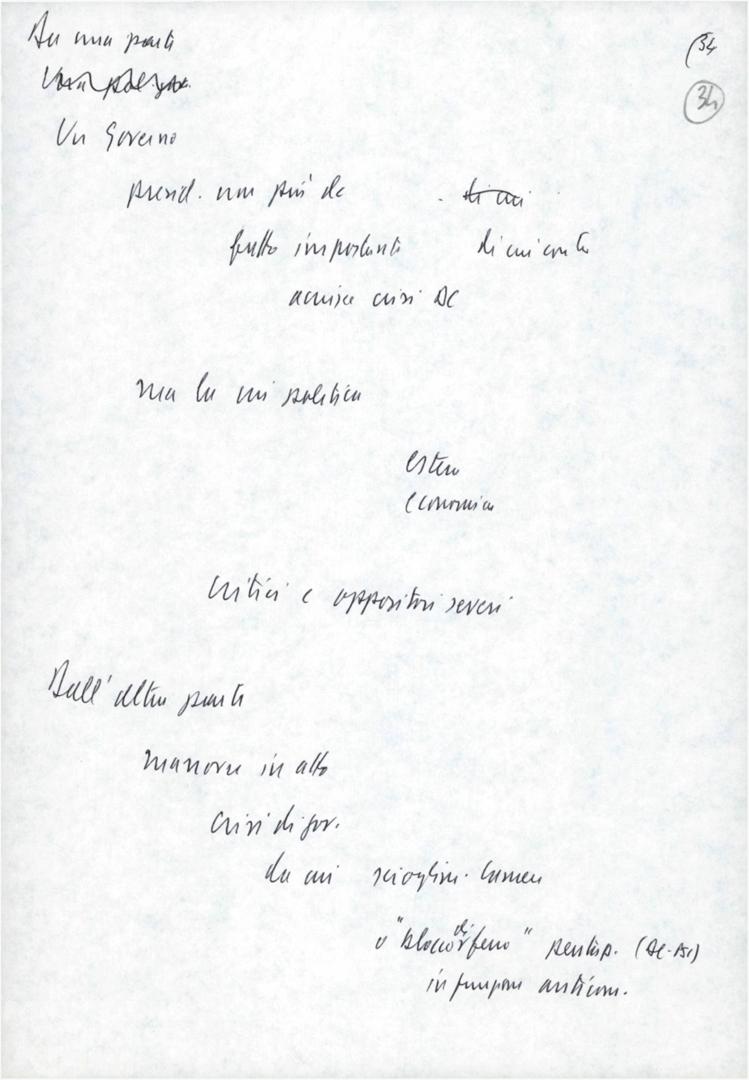 Da una parte
(34
34
Un Governo
presid. non più dc
di cui
fatto importante di cui conto
acuisce crisi DC
ma la cui politica
estera
economica
critici e oppositori severi
Dall'altra parte
manovre in alto
crisi di gov.
da cui scioglim. Camere
o "blocco di ferro" pentap. (DC-PSI)
in funzione anticom.